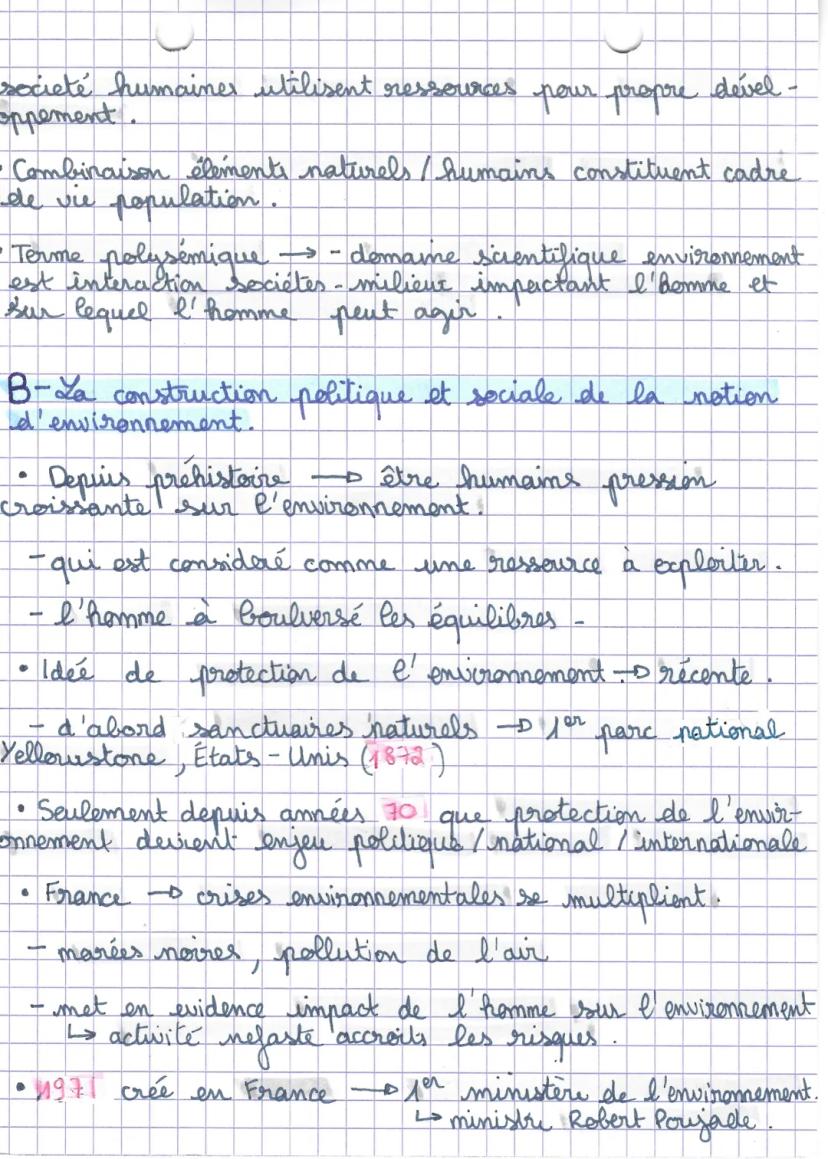 societé humaines utilisent ressources pour propre dével-
oppement.
· Combinaison éléments naturels / humains constituent cadre
de vie population.
· Terme polysémique → - domaine scientifique environnement
est interaction sociétés - milieux impactant l'homme et
sur lequel l'homme peut agir.
B - La construction politique et sociale de la notion
d'environnement.
• Depuis préhistoire → être humains pression
croissante sur l'environnement.
- qui est consideré comme une ressource à exploiter.
- l'homme à boulversé les équilibres -
• Idée de protection de l'environnement → récente.
- d'abord sanctuaires naturels → 1er parc national
Yellowstone, États-Unis (1872)
• Seulement depuis années 70 que protection de l'envir-
onnement devient enjeu politique / national / internationale
• France → crises environnementales se multiplient.
- marées noires, pollution de l'air
- met en evidence impact de l'homme sur l'environnement
↳ activité nefaste accroits les risques.
• 1971 créé en France → 1er ministère de l'environnement.
↳ ministre Robert Poujade.